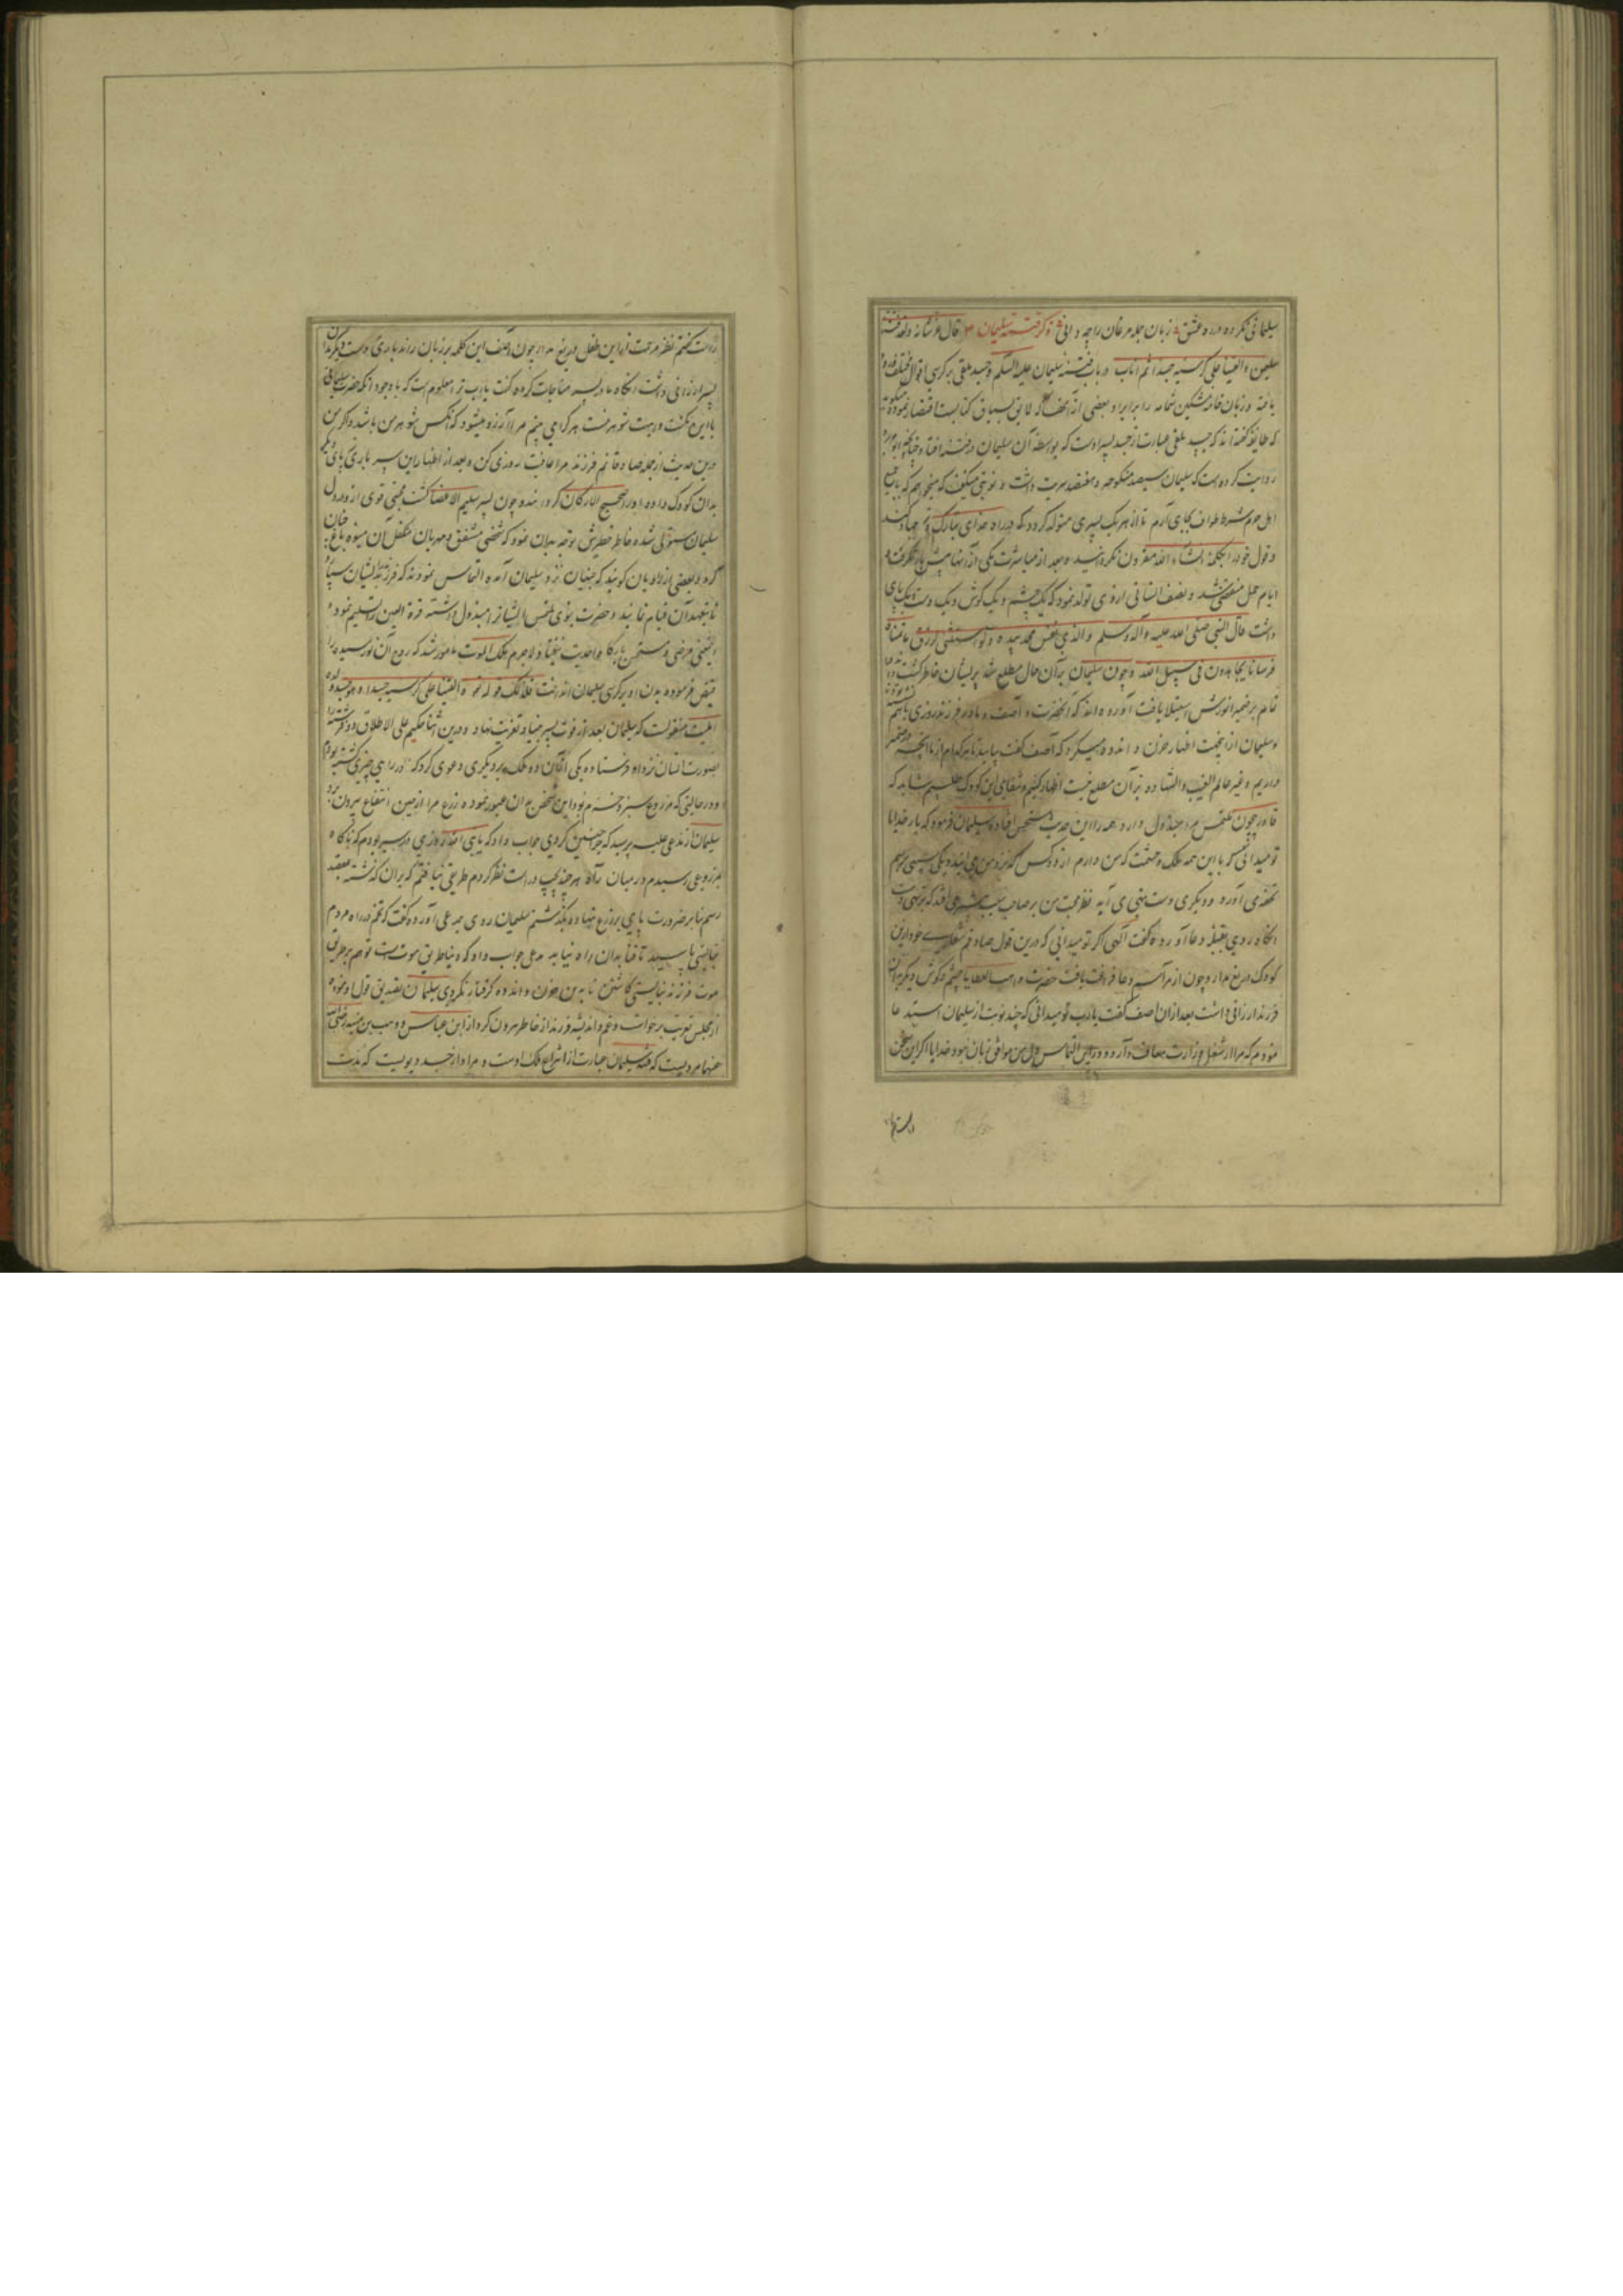 سلیمانی نکرده در ره عشق زبان جمله مرغان را چه دانی ذکر فتنه سلیمان قال عز شانه ولقد فتنا
سلیمن و القینا علی کرسیه جسدا ثم اناب در باب فتنه سلیمان علیه السلم و جسد ملقی بر کرسی اقوال مختلف
یافته و زبان خامه مشکین شمامه را برابراد بعضی از آنچه لایق بسیاق کتابست اقتصار نموده
که طایفه گفته اند که جسد ملقی عبارت از جسد پسر اوست که بواسطه آن سلیمان در فتنه افتاد
روایت کرده است که سلیمان سیصد منکوحه و هفتصد سریت داشت و نوبتی میگفت که میخواهم که با جمیع
اهل حرم شرط طواف بجای آرم تا از هر یک پسری متولد گردد که در راه خدای تبارک و تعالی جهاد کند
و قول خود را بکلمه انشاء الله مقرون نکردانید و بعد از مباشرت یکی از آنها بیش بار نگرفت و
ایام حمل منقضی شد و نصف انسانی از وی تولد نمود که یک چشم و یک گوش و یک دست و یک پای
داشت قال النبی صلی الله علیه و آله و سلم والذی نفس محمد بیده لو استثنی لرزق ما تمناه
فرسانا یجاهدون فی سبیل الله و چون سلیمان بر آن حال مطلع شد پریشان خاطر گشت
تمام بر ضمیر انورش استیلا یافت آورده اند که آنحضرت و آصف و مادر فرزند روزی باهم نشسته بودند
و سلیمان از آنجهت اظهار حزن و اندوه میکرد که آصف گفت بیایید تا هر کدام از ما آنچه در ضمیر
داریم و غیر عالم الغیب و الشهاده بر آن مطلع نیست اظهار کنیم و شفای این کودک طلبیم شاید که
قادر بیچون ملتمس مبذول دارد همه را این حدیث مستحسن افتاده سلیمان فرمود که بار خدایا
تو میدانی که با این همه ملک و حشمت که من دارم از دو کس که نزد من می آیند و یکی سیبی برسم
تحفه می آورد و دیگری دست تهی می آید نظر محبت من بر صاحب سیب بیشتر می افتد که بر تهی دست
آنگاه روی بقبله دعا آورده گفت آلهی اگر تو میدانی که درین قول صادقم شفای خود ازین
کودک دریغ مدار و چون از مراسم دعا فراغت یافت حضرت واهب العطایا چشم و گوش دیگر بدان
فرزند ارزانی داشت بعد از ان اصف گفت یا رب تو میدانی که چند نوبت از سلیمان استدعا
نمودم که مرا از شغل وزارت معاف دارد و درین التماس دل من موافق زبان نبود خدایا اگر این سخن
راست گفتم نظر مرحمت از این طفل دریغ مدار چون آصف این کلمه بر زبان راند باری دست دیگر بدان
پسر ارزانی داشت آنگاه مادر پسر مناجات کرده گفت یا رب ترا معلوم است که با وجود آنکه حضرت سلیمانی
با این مکنت و ابهت شوهر منست هر که را می بینم مرا آرزو میشود که آنکس شوهر من باشد و اگر من
درین حدیث از جمله صادقانم فرزند مرا عافیت روزی کن و بعد از اظهار این سر باری پای دیگر
بدان کودک داده او را صحیح الارکان گردانید و چون پسر سلیم الاعضا گشت محبتی قوی از او در دل
سلیمان مستولی شده خاطر خطیرش توجه بدان نمود که شخصی مشفق و مهربان متکفل آن میوه باغ جنان
گردد و بعضی از راویان گویند که جنیان نزد سلیمان آمده التماس نمودند که فرزند بدیشان سپارد
تا بتعهد آن قیام نمایند و حضرت نبوی ملتمس ایشانرا مبذول داشته قرة العین را تسلیم نمود
اینمعنی مرضی و مستحسن بارگاه احدیت نیفتاد لاجرم ملک الموت مامور شد که روح آن نورسیده را
قبض فرموده بدن او بر کرسی سلیمان انداخت فذلک قوله و القینا علی کرسیه جسدا
منقولست که سلیمان بعد از فوت پسر بنیاد تعزیت نهاد و درین اثنا حکیم علی الاطلاق دو فرشته را
بصورت انسان نزد او فرستاده یکی از آن دو ملک بر دیگری دعوی کرد که در اراضی چیزی کشته بودم
و در حالتی که مزروع سبز و خرم بود این شخص بر ان عبور نموده زرع مرا از حیز انتفاع بیرون برد
سلیمان از مدعی علیه پرسید که چرا چنین کردی جواب داد که یا نبی الله روزی در سیر بودم که ناگاه
بمزروعی رسیدم در میان راه هر چند بچپ و راست نظر کردم طریقی نیافتم که بر ان گذشته بمقصد
رسم بنا بر ضرورت پای بر زرع نهاده بگذشتم سلیمان روی بمدعی آورده گفت که تخم در راه مردم
بدان راه نیابد مدعی جواب داد که دنیا طریق موتست تو هم بر طریق
موت فرزند نبایستی کاشتن تا بدین حزن و اندوه گرفتار نگردی سلیمان تصدیق قول او نموده
از مجلس تعزیت برخواست و غم و اندیشه فرزند از خاطر بیرون کرد و از ابن عباس و وهب بن منبه رضی الله
عنهما مرویست که فتنه سلیمان عبارت از انتزاع ملک اوست و مراد از جسد دیویست که مدت